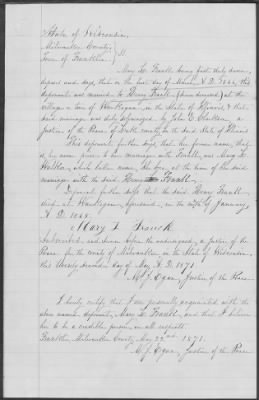 State of Wisconsin,
Milwaukee County, } ss.
Town of Franklin
Mary L. being first duly sworn,
deposes and says, that on the day of March, A.D. this
deponent was married to Henry (now deceased) at the
village or town of Waukegan, in the State of Illinois, & that
said marriage was duly solemnized by John E. a
Justice of the Peace of county in the said State of Illinois
This deponent further says that her former name, that
is, her name prior to her marriage with was Mary L.
which latter name she bore, at the time of the said
marriage with the said Henry
Deponent further says that the said Henry
died at Waukegan, aforesaid, on the day of January,
A.D.
Mary L
Subscribed and sworn before the undersigned, a Justice of the
Peace for the county of Milwaukee, in the State of Wisconsin,
this twenty second day of May A.D. 1871
M. J. Egan, Justice of the Peace
I hereby certify, that I am personally acquainted with the
above named deponent, Mary L. and that I believe
her to be a credible person, in all respects.
Franklin, Milwaukee County, May 22nd 1871.
M. J. Egan, Justice of the Peace